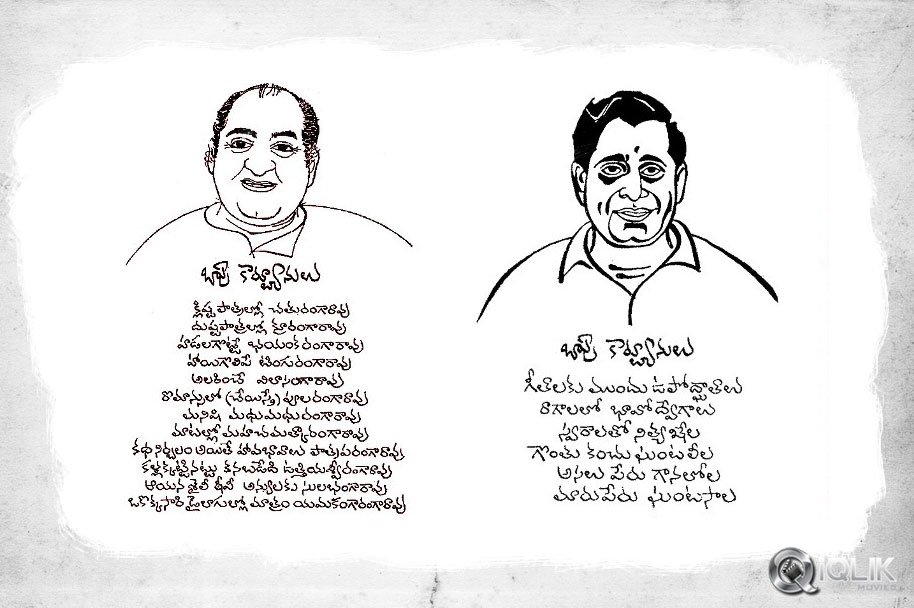 బాపు కార్ట్యూనులు
క్లిష్టపాత్రలల్లో చతురంగారావు
దుష్టపాత్రలల్లో క్రూరంగారావు
హడలగొట్టే భయంకరంగారావు
హాయిగొలిపే టింగురంగారావు
అలరించే విలాసంగారావు
రొమాన్సులో (చేయిస్తే) పూలరంగారావు
మనిషి మధుమధురంగారావు
మాటల్లో మహాచమత్కారంగారావు
కథ నిర్బలం అయితే హావభావాలు పాత్రపరంగారావు
కళ్లక్కట్టినట్టు కనబడేది
ఆయన శైలీ ఠీవీ అన్యులకు సులభంగారావు
ఒకొక్కసారి డైలాగుల్లో మాత్రం యమకంగారంగారావు
బాపు కార్ట్యూనులు
గీతాలకు ముందు ఉపోద్ఘాతాలు
రాగాలలో భావోద్వేగాలు
స్వరాలతో నిత్య ఖేల
గొంతు కంచు ఘంట లీల
అసలు పేరు గానలోల
మారుపేరు ఘంటసాల
IQLIK
MOVIES